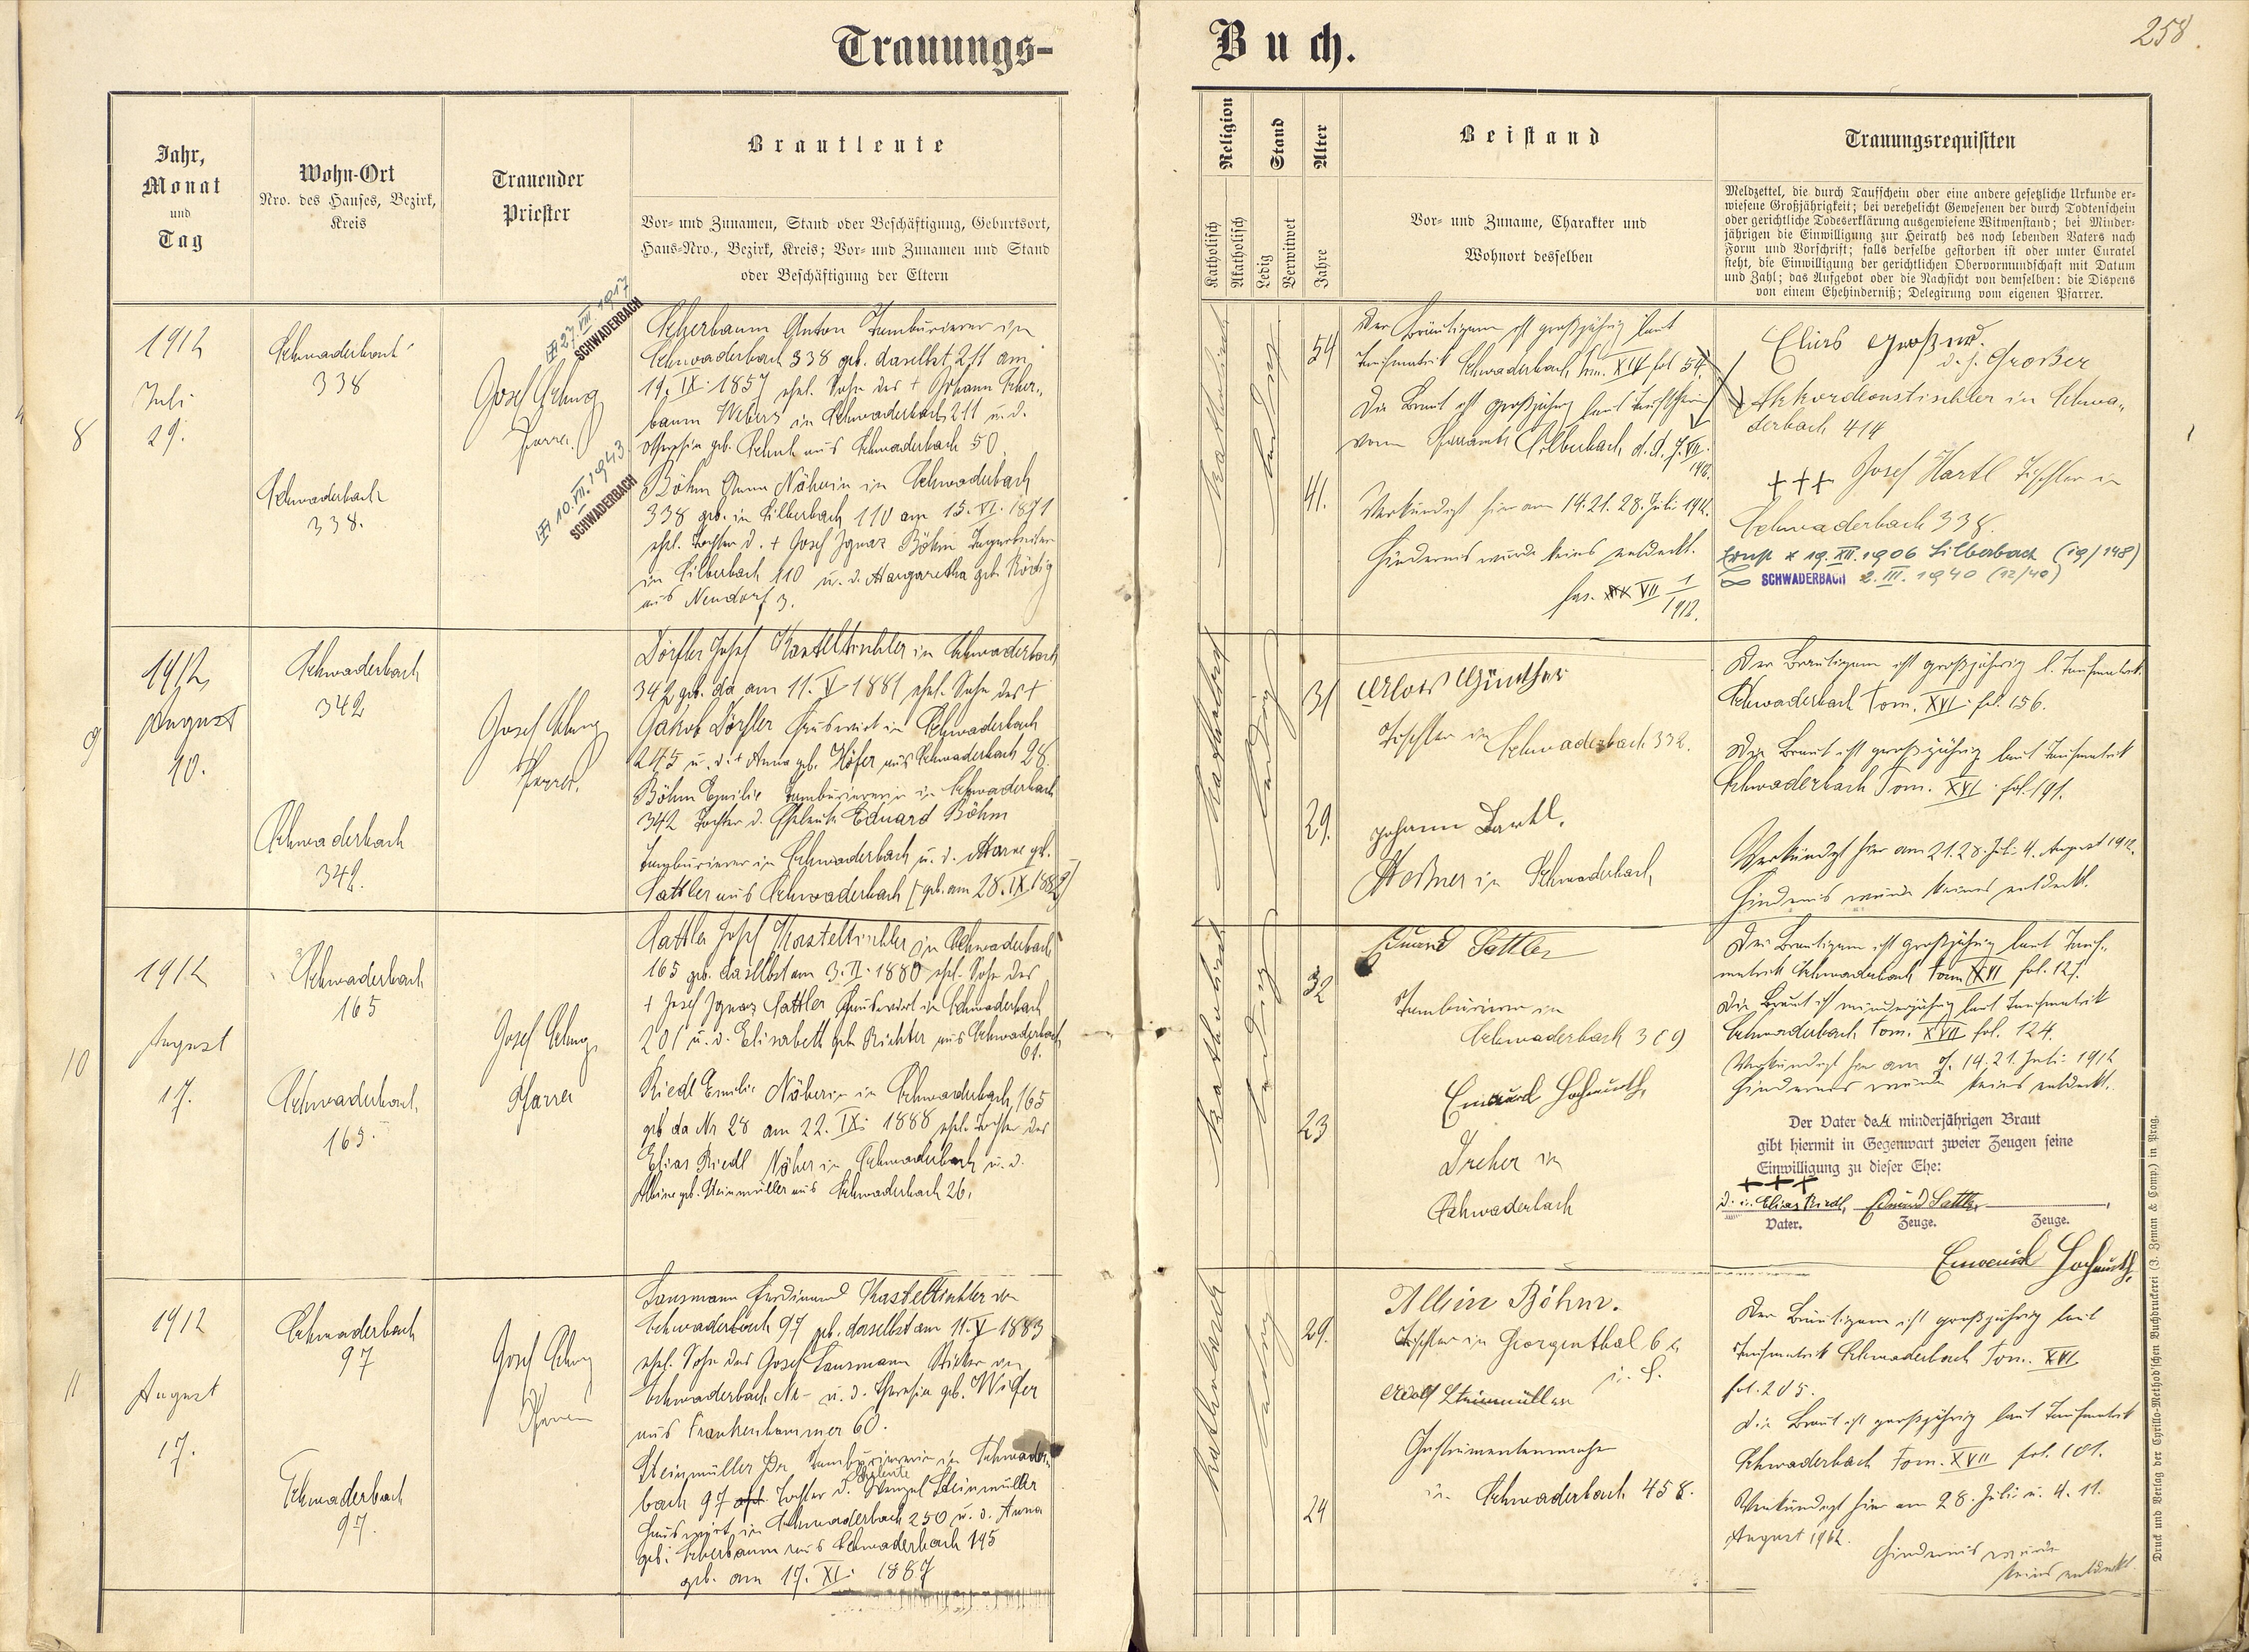 Trauungs-
Buch.
258.
Jahr,
Monat
und
Tag
Wohn-Ort
Nro. des Hauses, Bezirk,
Kreis
Trauender
Priester
Brautleute
Vor- und Zunamen, Stand oder Beschäftigung, Geburtsort,
Haus-Nro., Bezirk, Kreis; Vor- und Zunamen und Stand
oder Beschäftigung der Eltern
Religion
Katholisch
Akatholisch
Stand
Ledig
Verwitwet
Alter
Jahre
Beistand
Vor- und Zuname, Charakter und
Wohnort desselben
Trauungsrequisiten
Meldzettel, die durch Taufschein oder eine andere gesetzliche Urkunde er-
wiesene Großjährigkeit; bei verehelicht Gewesenen der durch Todtenschein
oder gerichtliche Todeserklärung ausgewiesene Witwenstand; bei Minder-
jährigen die Einwilligung zur Heirath des noch lebenden Vaters nach
Form und Vorschrift; falls derselbe gestorben ist oder unter Curatel
steht, die Einwilligung der gerichtlichen Obervormundschaft mit Datum
und Zahl; das Aufgebot oder die Nachsicht von demselben: die Dispens
von einem Ehehinderniß; Delegirung vom eigenen Pfarrer.
8
1912
Juli
29.
Schwaderbach
338
Schwaderbach
338.
Josef
Pfarrer
27. VIII. 1917
SCHWADERBACH
10. VII. 1943
SCHWADERBACH
Scherbaum Anton Tamburierer in
Schwaderbach 338 geb. daselbst 211 am
19. IX. 1857 ehel. Sohn des + Johann Scher-
baum Webers in Schwaderbach 211 u. d.
Theresia geb. aus Schwaderbach 50.
Böhm Anna Näherin in Schwaderbach
338 geb. in Silberbach 110 am 15. VI. 1871
ehel. Tochter d. + Josef Ignaz Böhm
in Silberbach 110 u. d. Margaretha geb.
aus Neudorf 3.
katholisch
ledig
54
41.
Der Bräutigam ist großjährig laut
Taufmatrik Schwaderbach tom. XIV fol 54.
Die Braut ist großjährig laut Taufschein
vom Pfarramte Silberbach d. d. 7. VII.
1912.
Verkündigt hier am 14. 21. 28. Juli 1912.
Hindernis wurde keines entdeckt.
fas. VII 1/1912.
Elias
d. j. Großer
Akkordeonstischler in Schwa-
derbach 414
+++ Josef Hartl Tischler in
Schwaderbach 338.
Ernst * 19. XII. 1906 Silberbach (19/148)
∞ SCHWADERBACH 2. III. 1940 (12/40)
9
1912
August
10.
Schwaderbach
342
Schwaderbach
342.
Josef
Pfarrer
Dörfler Josef Kasteltischler in Schwaderbach
342 geb. da am 11. V 1881 ehel. Sohn des +
Jakob Dörfler Hauswirt in Schwaderbach
245 u. d. + Anna geb. Höfer aus Schwaderbach 28.
Böhm Emilie Tamburiererin in Schwaderbach
342 Tochter d. Eheleute Eduard Böhm
Tamburierer in Schwaderbach u. d. Marie geb.
Sattler aus Schwaderbach (geb. am 28. IX 1882)
katholisch
ledig
31
29.
Alois Günther
Tischler in Schwaderbach 332.
Johann Bartl.
in Schwaderbach
Der Bräutigam ist großjährig l. Taufmatrik
Schwaderbach Tom. XVI. fol. 156.
Die Braut ist großjährig laut Taufmatrik
Schwaderbach Tom. XVI. fol. 191.
Verkündigt hier am 21. 28. Juli 4. August 1912.
Hindernis wurde keines entdeckt.
10
1912
August
17.
Schwaderbach
165
Schwaderbach
165.
Josef
Pfarrer
Sattler Josef Kasteltischler in Schwaderbach
165 geb. daselbst am 3. II. 1880 ehel. Sohn des
+ Josef Ignaz Sattler Hauswirt in Schwaderbach
201 u. d. Elisabeth geb. Richter aus Schwaderbach
61.
Riedl Emilie Näherin in Schwaderbach 165
geb da Nr 28 am 22. IX. 1888 ehel. Tochter des
Elias Riedl Näher in Schwaderbach u. d.
Albine geb. Steinmüller aus Schwaderbach 26.
katholisch
ledig
32
23
Eduard Sattler
Tamburierer in
Schwaderbach 309
Emanuel Hochmuth,
Dreher in
Schwaderbach
Der Bräutigam ist großjährig laut Tauf-
matrik Schwaderbach Tom XVI fol. 127.
Die Braut ist minderjährig laut Taufmatrik
Schwaderbach Tom. XVII fol. 124.
Verkündigt hier am 7. 14. 21. Juli 1912
Hindernis wurde keines entdeckt.
Der Vater der minderjährigen Braut
gibt hiermit in Gegenwart zweier Zeugen seine
Einwilligung zu dieser Ehe:
+++
d. i. Elias Riedl, Eduard Sattler
Vater. Zeuge. Zeuge.
Emanuel Hochmuth,
11
1912
August
17.
Schwaderbach
97
Schwaderbach
97.
Josef
Pfarrer
Lausmann Ferdinand Kasteltischler in
Schwaderbach 97 geb. daselbst am 11. V 1883
ehel. Sohn des Josef Lausmann Sticker in
Schwaderbach Nr - u. d. Theresia geb. Wilfer
aus Frankenhammer 60.
Steinmüller Ida Tamburiererin in Schwader-
bach 97 Tochter d. Eheleute Wenzel Steinmüller
Hauswirt in Schwaderbach 250 u. d. Anna
geb. Scherbaum aus Schwaderbach 195
geb. am 17. XI. 1887
katholisch
ledig
29.
24
Albin Böhm.
Tischler in Georgenthal 62
Adolf Steinmüller
Instrumentenmacher
in Schwaderbach 458.
Der Bräutigam ist großjährig laut
Taufmatrik Schwaderbach Tom. XVI
fol. 205.
Die Braut ist großjährig laut Taufmatrik
Schwaderbach Tom. XVII fol. 101.
Verkündigt hier am 28. Juli u. 4. 11.
August 1912.
Hindernis wurde
keines entdeckt.
Druck und Verlag der Cyrillo-Method'schen Buchdruckerei (J. Zeman & Comp.) in Prag.